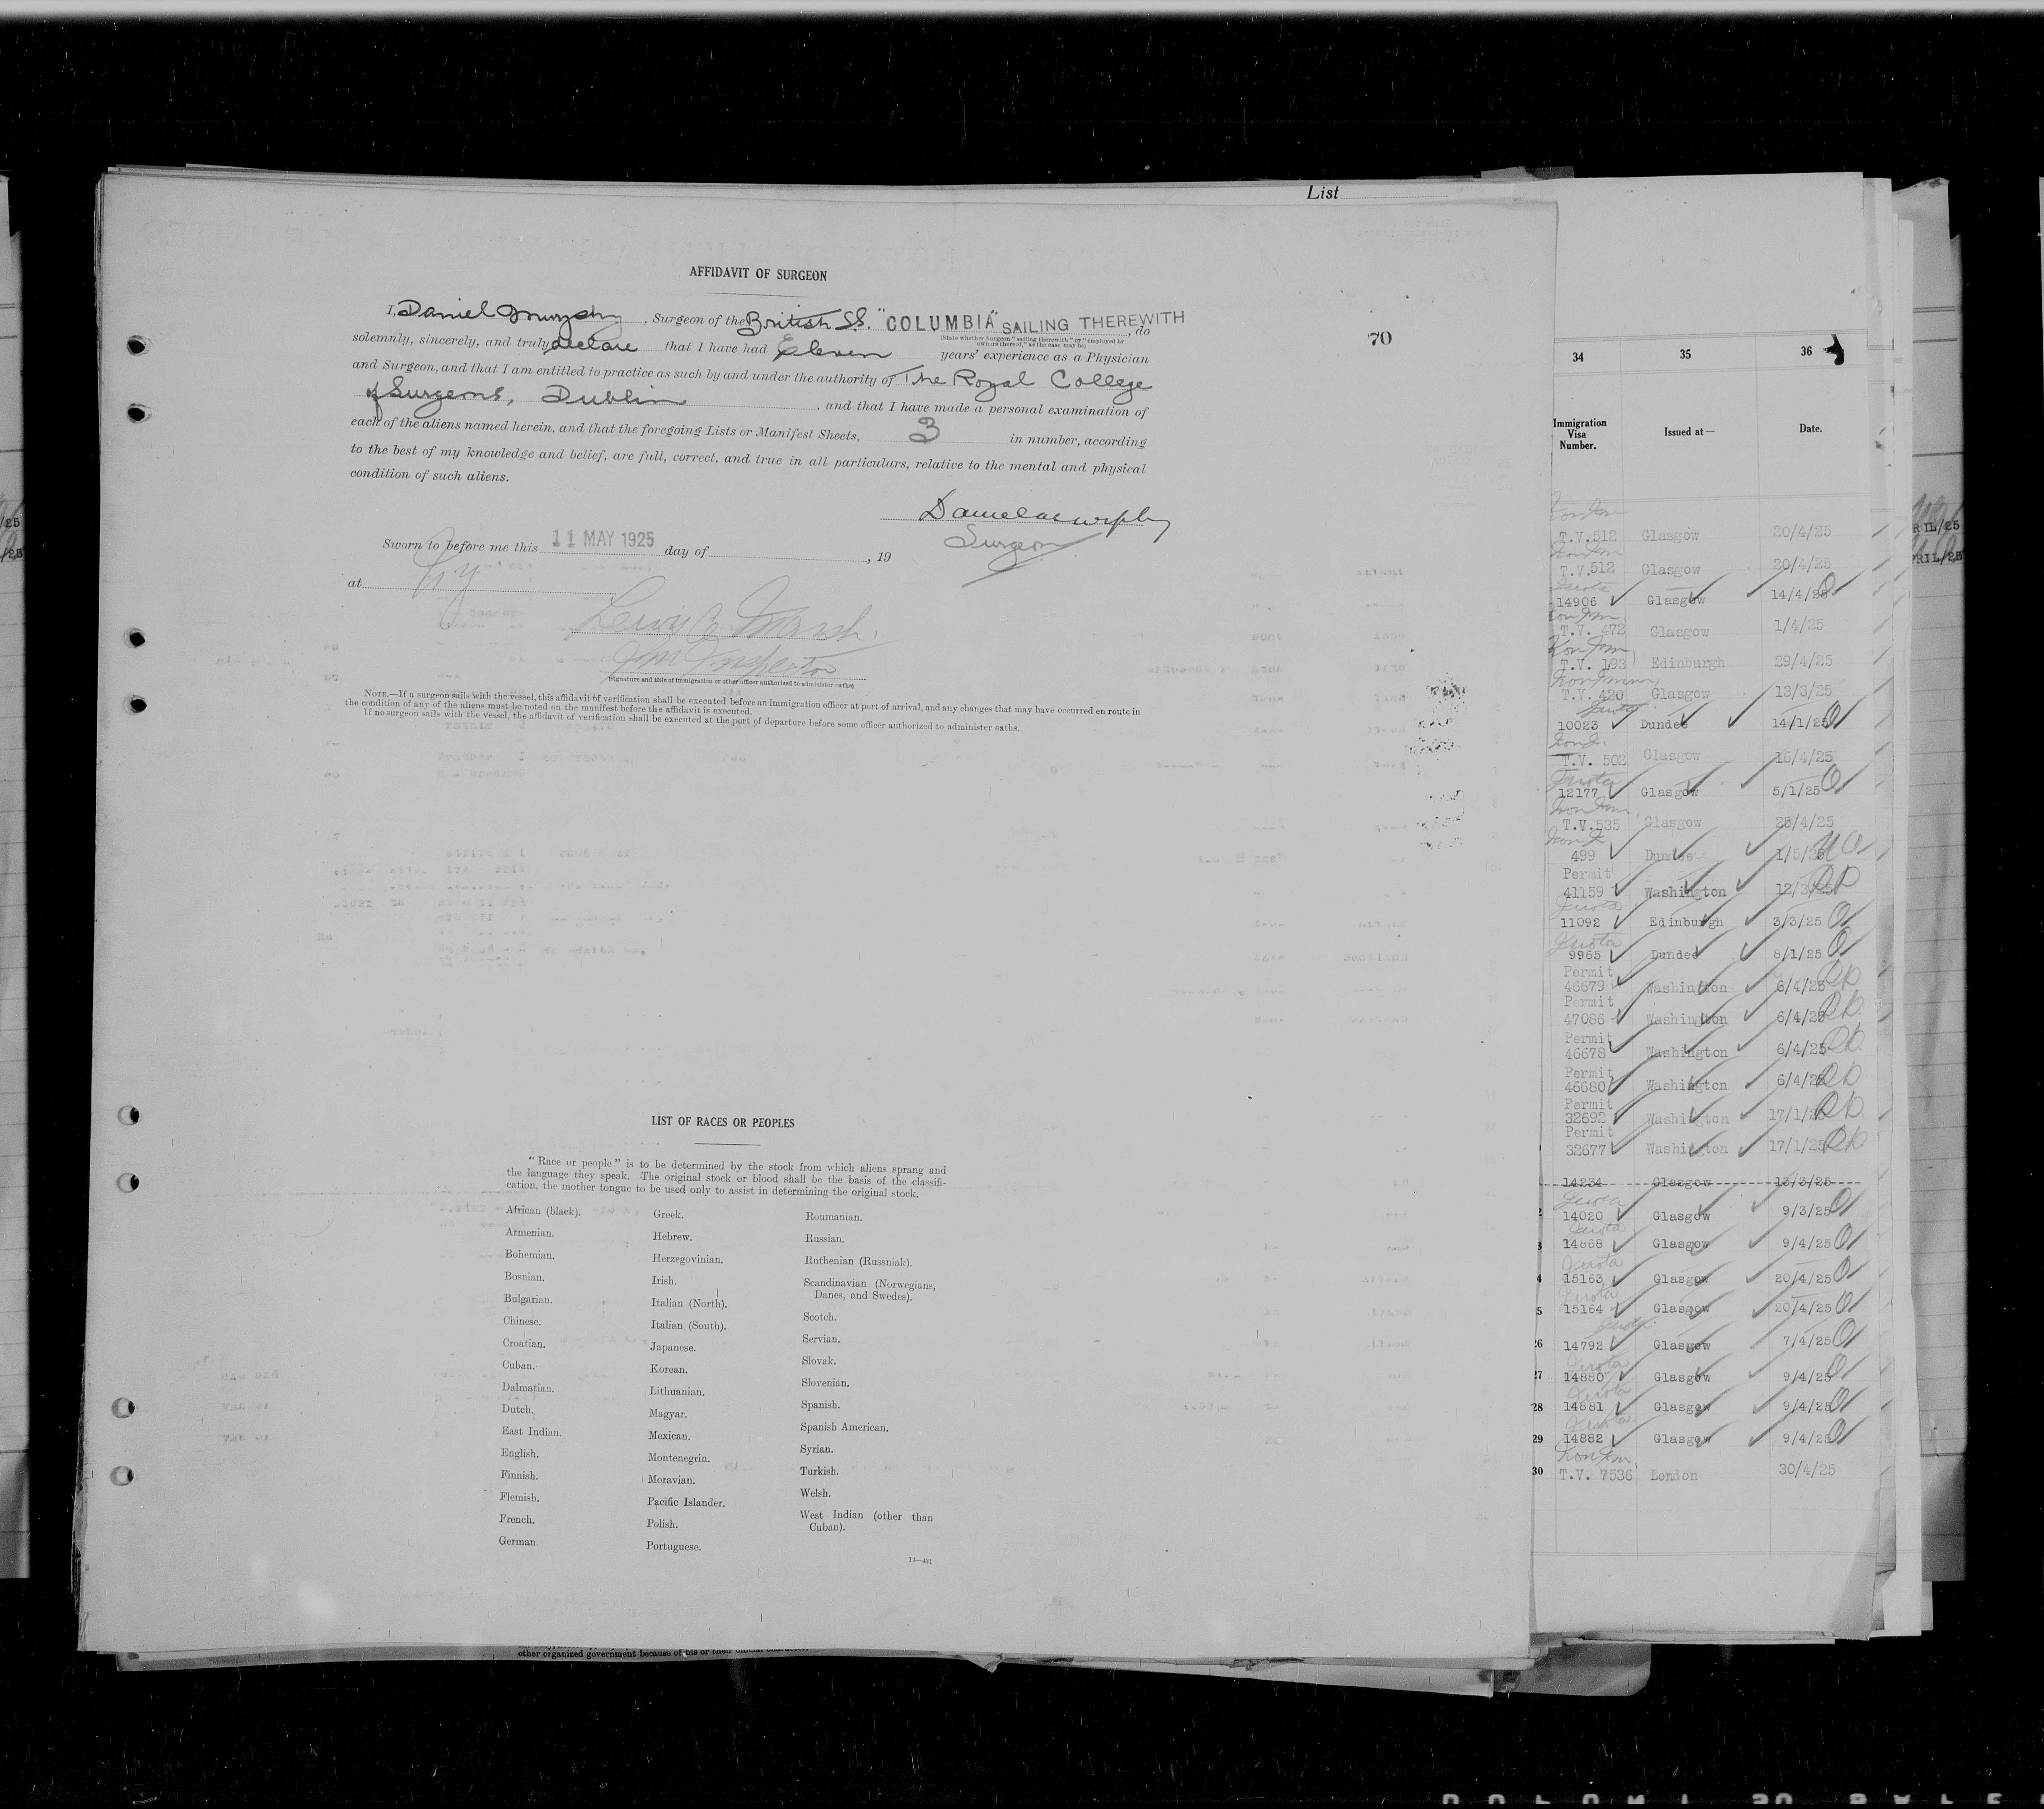 List
AFFIDAVIT OF SURGEON
I, Daniel Murphy, Surgeon of the British S.S. "COLUMBIA" SAILING THEREWITH, do
(State whether surgeon "sailing therewith" or "employed by owners thereof," as the case may be)
solemnly, sincerely, and truly declare that I have had Eleven years' experience as a Physician
and Surgeon, and that I am entitled to practice as such by and under the authority of The Royal College
of Surgeons, Dublin, and that I have made a personal examination of
each of the aliens named herein, and that the foregoing Lists or Manifest Sheets, 3 in number, according
to the best of my knowledge and belief, are full, correct, and true in all particulars, relative to the mental and physical
condition of such aliens.
Daniel Murphy
Surgeon
Sworn to before me this 11 MAY 1925 day of , 19
at NY
Lewis Marsh
Imm Inspector
(Signature and title of immigration or other officer authorized to administer oaths)
NOTE.—If a surgeon sails with the vessel, this affidavit of verification shall be executed before an immigration officer at port of arrival, and any changes that may have occurred en route in
the condition of any of the aliens must be noted on the manifest before the affidavit is executed.
If no surgeon sails with the vessel, the affidavit of verification shall be executed at the port of departure before some officer authorized to administer oaths.
70
LIST OF RACES OR PEOPLES
"Race or people" is to be determined by the stock from which aliens sprang and
the language they speak. The original stock or blood shall be the basis of the classifi-
cation, the mother tongue to be used only to assist in determining the original stock.
African (black).
Armenian.
Bohemian.
Bosnian.
Bulgarian.
Chinese.
Croatian.
Cuban.
Dalmatian.
Dutch.
East Indian.
English.
Finnish.
Flemish.
French.
German.
Greek.
Hebrew.
Herzegovinian.
Irish.
Italian (North).
Italian (South).
Japanese.
Korean.
Lithuanian.
Magyar.
Mexican.
Montenegrin.
Moravian.
Pacific Islander.
Polish.
Portuguese.
Roumanian.
Russian.
Ruthenian (Russniak).
Scandinavian (Norwegians,
Danes, and Swedes).
Scotch.
Servian.
Slovak.
Slovenian.
Spanish.
Spanish American.
Syrian.
Turkish.
Welsh.
West Indian (other than
Cuban).
other organized government because of his or their
34 35 36
Immigration Visa Number. Issued at— Date.
T.V. 512 Glasgow 20/4/25
T.V. 512 Glasgow 20/4/25
Quota
14906 Glasgow 14/4/25
T.V. 472 Glasgow 1/4/25
T.V. 193 Edinburgh 29/4/25
T.V. 420 Glasgow 13/3/25
Quota
10023 Dundee 14/1/25
T.V. 502 Glasgow 16/4/25
Quota
12177 Glasgow 5/1/25
T.V. 535 Glasgow 25/4/25
499 Dundee 1/5/25
Permit
41159 Washington 12/3/25
Quota
11092 Edinburgh 3/3/25
Quota
9965 Dundee 8/1/25
Permit
46679 Washington 6/4/25
Permit
47086 Washington 6/4/25
Permit
46678 Washington 6/4/25
Permit
46680 Washington 6/4/25
Permit
32692 Washington 17/1/25
Permit
32677 Washington 17/1/25
14234 Glasgow 13/3/25
Quota
2 14020 Glasgow 9/3/25
Quota
3 14868 Glasgow 9/4/25
Quota
4 15163 Glasgow 20/4/25
Quota
5 15164 Glasgow 20/4/25
Quota
26 14792 Glasgow 7/4/25
Quota
27 14880 Glasgow 9/4/25
Quota
28 14881 Glasgow 9/4/25
Quota
29 14882 Glasgow 9/4/25
30 T.V. 7536 London 30/4/25
RIL/25
PRIL/25
/25
/25